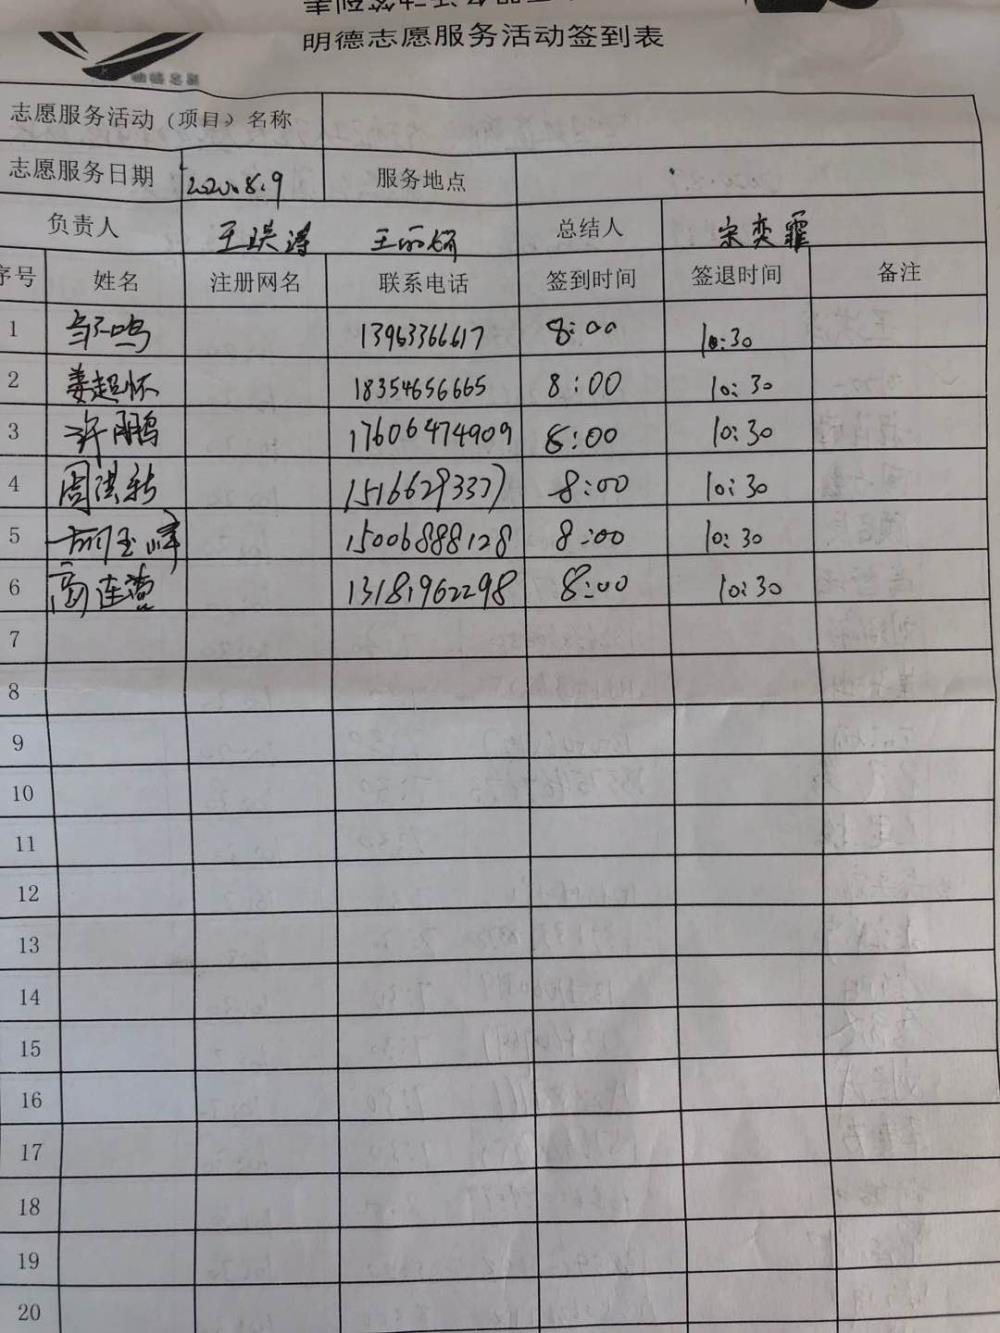 明德志愿服务活动签到表
志愿服务活动（项目）名称
志愿服务日期 2020.8.9 服务地点
负责人 王洪涛 王丽娟 总结人 宋奕霏
序号 姓名 注册网名 联系电话 签到时间 签退时间 备注
1 13963366617 8:00 10:30
2 姜超怀 18354656665 8:00 10:30
3 许鹏 17606474909 8:00 10:30
4 周洪新 15166293377 8:00 10:30
5 15006888128 8:00 10:30
6 高连 13181962298 8:00 10:30
7
8
9
10
11
12
13
14
15
16
17
18
19
20